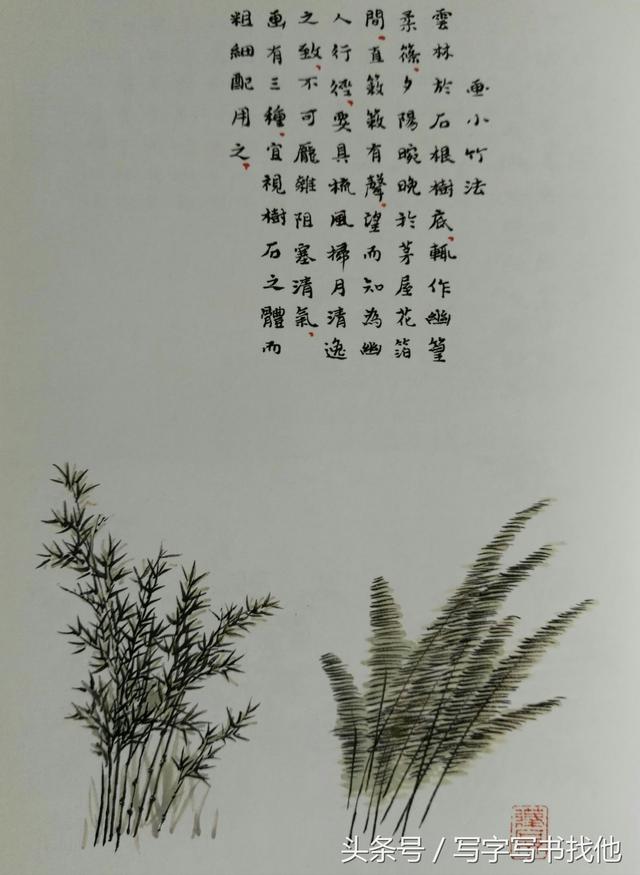 畫小竹法
雲林於石根樹底、輒作幽篁
柔篠、夕陽晼晚於茅屋花箔
間、直簌簌有聲、望而知為幽
人行徑、要具梳風掃月清逸
之致、不可龐雜阻塞清氣、
畫有三種、宜視樹石之體而
粗細配用之、
头条号 / 写字写书找他